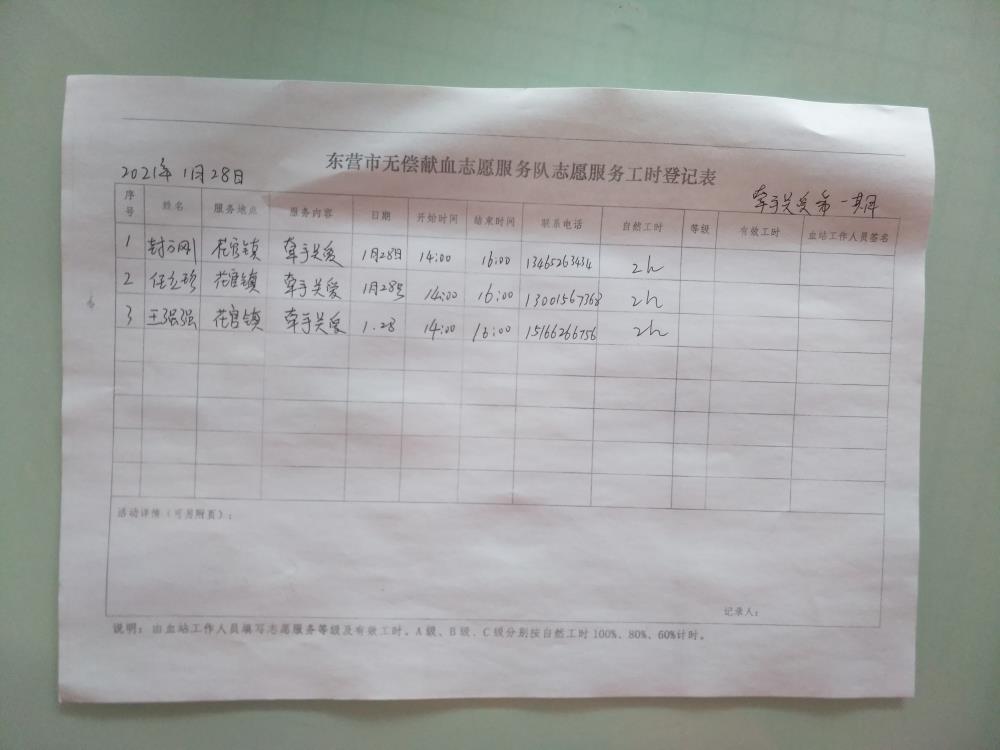 东营市无偿献血志愿服务队志愿服务工时登记表
2021年1月28日
牵手关爱第一期
序号 姓名 服务地点 服务内容 日期 开始时间 结束时间 联系电话 自然工时 等级 有效工时 血站工作人员签名
1 封方刚 花官镇 牵手关爱 1月28日 14:00 16:00 13465263434 2h
2 任立珍 花官镇 牵手关爱 1月28号 14:00 16:00 13001567368 2h
3 王强强 花官镇 牵手关爱 1.28 14:00 16:00 15166266756 2h
活动详情(可另附页):
记录人:
说明: 由血站工作人员填写志愿服务等级及有效工时。A级、B级、C级分别按自然工时100%、80%、60%计时。